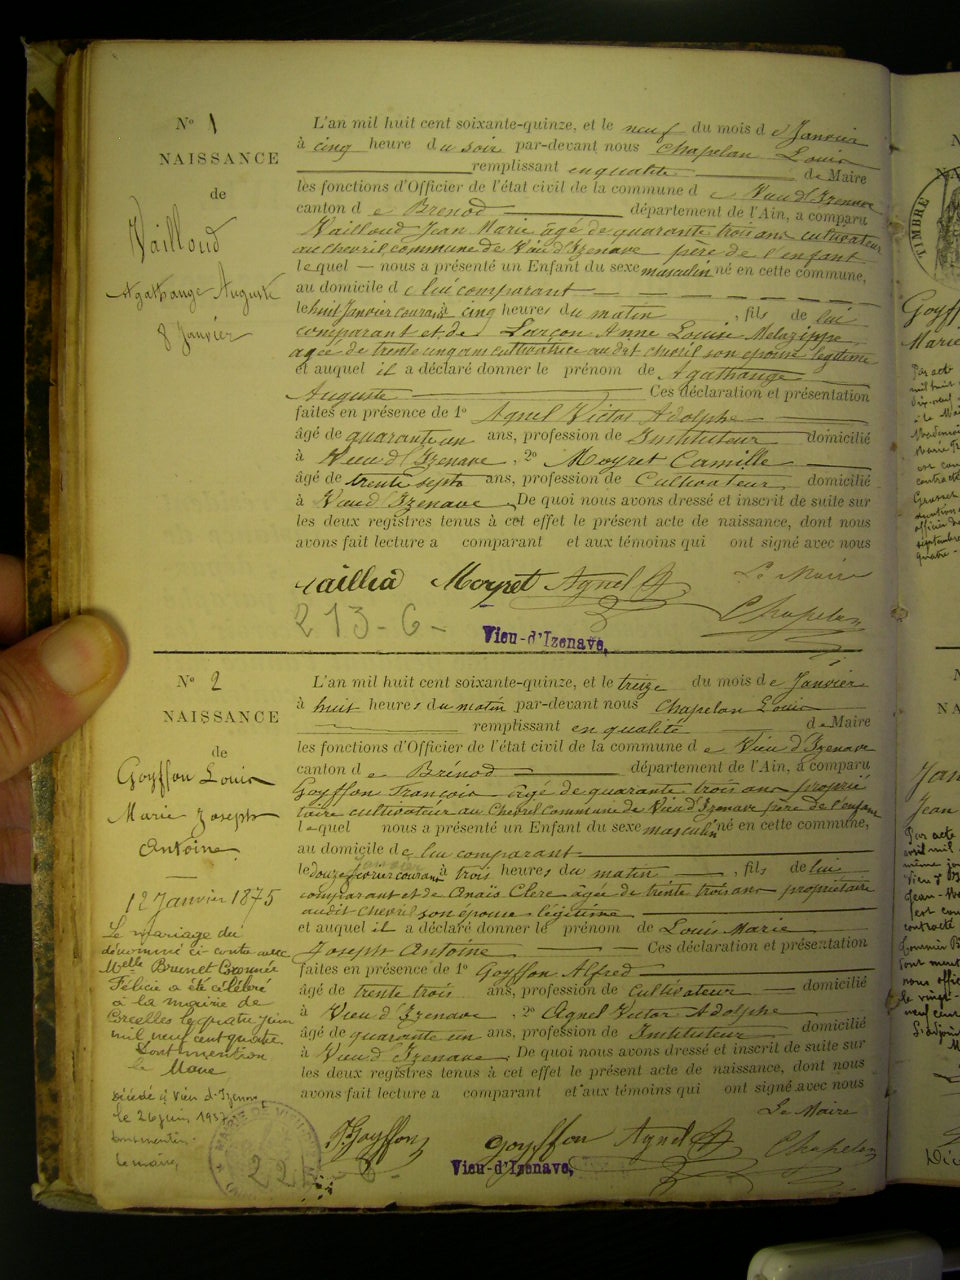 N° 1
NAISSANCE
de
Vailloud
Agathange Auguste
8 Janvier
L'an mil huit cent soixante-quinze, et le neuf du mois d e Janvier
à cinq heure du soir par-devant nous Chapelan Louis
remplissant en qualité de Maire
les fonctions d'Officier de l'état civil de la commune d e Vieu d'Izenave
canton d e Brenod département de l'Ain, a comparu
Vailloud Jean Marie âgé de quarante trois ans cultivateur
au Chevril commune de Vieu d'Izenave père de l'enfant
lequel — nous a présenté un Enfant du sexe masculin né en cette commune,
au domicile d e lui comparant
le huit Janvier courant à cinq heures du matin , fils de lui
comparant et de Larçon Anne Louise
agée de trente un ans cultivatrice audit Chevril son épouse légitime
et auquel il a déclaré donner le prénom de Agathange
Auguste Ces déclaration et présentation
faites en présence de 1° Agnel Victor Adolphe
âgé de quarante un ans, profession de Instituteur domicilié
à Vieu d'Izenave , 2° Moyret Camille
âgé de trente sept ans, profession de Cultivateur domicilié
à Vieu d'Izenave . De quoi nous avons dressé et inscrit de suite sur
les deux registres tenus à cet effet le présent acte de naissance, dont nous
avons fait lecture a comparant et aux témoins qui ont signé avec nous
Moyret Agnel Le Maire
Chapelan
213-6-
Vieu-d'Izenave,
N° 2
NAISSANCE
de
Goyffon Louis
Marie Joseph
Antoine
12 Janvier 1875
Le mariage du
dénommé ci contre avec
Melle Brunet
Félicie a été célébré
à la mairie de
le quatre Juin
mil neuf cent quatre
Dont mention
le Maire
Décédé à Vieu d'Izenave
le 26 juin 1937
Dont mention
Le maire,
L'an mil huit cent soixante-quinze, et le treize du mois d e Janvier
à huit heures du matin par-devant nous Chapelan Louis
remplissant en qualité d e Maire
les fonctions d'Officier de l'état civil de la commune d e Vieu d'Izenave
canton d e Brénod département de l'Ain, a comparu
Goyffon François âgé de quarante trois ans proprié
taire cultivateur au Chevril commune de Vieu d'Izenave père de l'enfant
lequel nous a présenté un Enfant du sexe masculin né en cette commune,
au domicile d e lui comparant
le douze courant à trois heures du matin , fils de lui
comparant et de Anaïs Clerc âgée de trente trois ans propriétaire
audit Chevril son épouse légitime
et auquel il a déclaré donner le prénom de Louis Marie
Joseph Antoine Ces déclaration et présentation
faites en présence de 1° Goyffon Alfred
âgé de trente trois ans, profession de Cultivateur domicilié
à Vieu d'Izenave , 2° Agnel Victor Adolphe
âgé de quarante un ans, profession de Instituteur domicilié
à Vieu d'Izenave . De quoi nous avons dressé et inscrit de suite sur
les deux registres tenus à cet effet le présent acte de naissance, dont nous
avons fait lecture a comparant et aux témoins qui ont signé avec nous
Le Maire
Goyffon Goyffon Agnel Chapelan
Vieu-d'Izenave,
TIMBRE